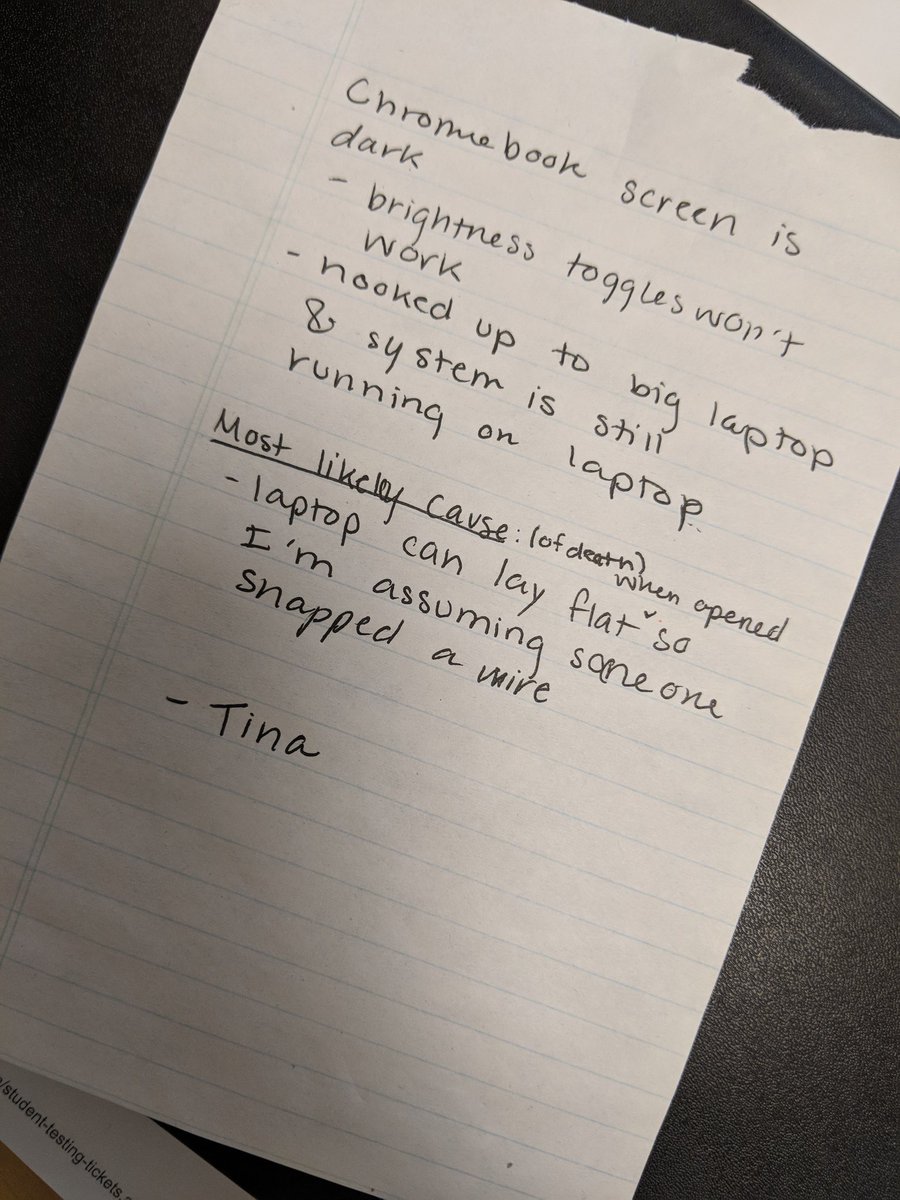 Chromebook screen is
dark
- brightness toggles won't
work
- hooked up to big laptop
& system is still
running on laptop.
Most likely Cause: (of death)
- laptop can lay flat ˅when opened so
I'm assuming someone
snapped a wire
- Tina
/student-testing-tickets.